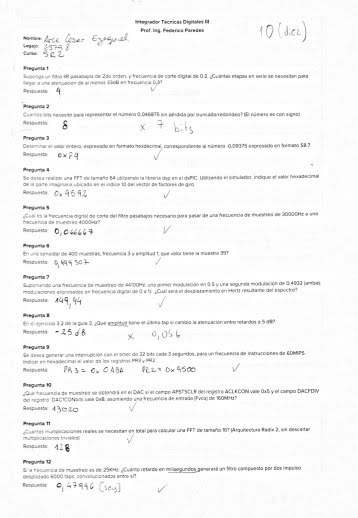 Integrador Técnicas Digitales III
Prof. Ing. Federico Paredes
10 (diez)
Nombre: Arce Cesar Ezequiel
Legajo:
Curso: 5R2
Pregunta 1
Suponga un filtro IIR pasabajos de 2do orden, y frecuencia de corte digital de 0.2. ¿Cuántas etapas en serie se necesitan para
llegar a una atenuación de al menos 33dB en frecuencia
Respuesta: 4
Pregunta 2
Cuantos bits necesito para representar el número 0,046875 sin pérdida por truncado/redondeo? (El número es con signo)
Respuesta: 8 x 7 bits
Pregunta 3
Determinar el valor entero, expresado en formato hexadecimal, correspondiente al número -0,09375 expresado en formato S8.7
Respuesta: 0xF4
Pregunta 4
Se desea realizar una FFT de tamaño 64 utilizando la librería dsp en el dsPIC. Utilizando el simulador, indique el valor hexadecimal
de la parte imaginaria ubicado en el índice 10 del vector de factores de giro
Respuesta: 0x9592
Pregunta 5
¿Cuál es la frecuencia digital de corte del filtro pasabajos necesario para pasar de una frecuencia de muestreo de 30000Hz a una
frecuencia de muestreo 4000Hz?
Respuesta: 0,066667
Pregunta 6
En una senoidal de 400 muestras, frecuencia 3 y amplitud 1, que valor tiene la muestra 35?
Respuesta:
Pregunta 7
Suponiendo una frecuencia de muestreo de 44100Hz, una primer modulación en 0.5 y una segunda modulación de 0,4932 (ambas
modulaciones expresadas en frecuencia digital de 0 a 1). ¿Cuál será el desplazamiento en Hertz resultante del espectro?
Respuesta: 149,94
Pregunta 8
En el ejercicio 3.2 de la guía 3, ¿Que amplitud tiene el último tap si cambio la atenuación entre retardos a 5 dB?
Respuesta: -25dB x 0,056
Pregunta 9
Se desea generar una interrupción con el timer de 32 bits cada 3 segundos, para un frecuencia de instrucciones de 60MIPS.
Indicar en hexadecimal el valor de los registros PR3 y PR2.
Respuesta: PR3 = 0x0ABA PR2 = 0x9500
Pregunta 10
¿Que frecuencia de muestreo se obtendrá en el DAC si el campo APSTSCLR del registro ACLKCON vale 0x5 y el campo DACFDIV
del registro DAC1CONbits vale 0x8, asumiendo una frecuencia de entrada (Fvco) de 160MHz?
Respuesta: 13020
Pregunta 11
¿Cuantas multiplicaciones reales se necesitan en total para calcular una FFT de tamaño 16? (Arquitectura Radix 2, sin descartar
multiplicaciones triviales)
Respuesta: 128
Pregunta 12
Si la frecuencia de muestreo es de 25KHz: ¿Cuánto retardo en milisegundos generará un filtro compuesto por dos impulso
desplazado 6000 taps, convolucionados entre si?
Respuesta: 0,47996 [seg]